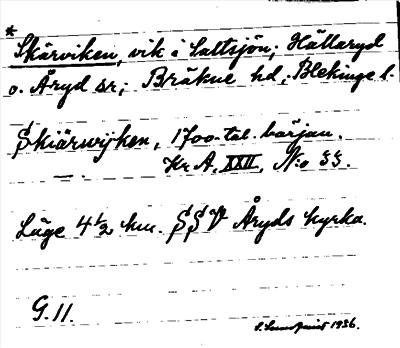 *
Skärviken, vik i Saltsjön; Hällaryd
o. Åryd sr; Bräkne hd, Blekinge l.
Skiärwijken, 1700-tal. början.
— Kr. A. XXII, No 33.
Läge 4½ km. SSV Åryds kyrka.
G. 11.
1936.